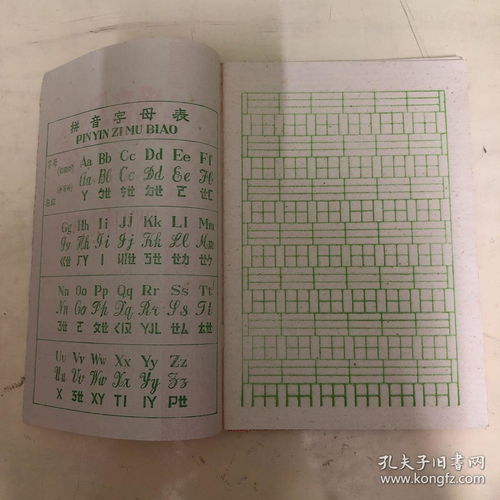 拼音字母表
PIN YIN ZI MU BIAO
Aa Bb Cc Dd Ee Ff
Aa Bb Cc Dd Ee Ff
ㄚ ㄅㄝ ㄘㄝ ㄉㄝ ㄜ ㄝㄈ
Gg Hh Ii Jj Kk Ll Mm
Gg Hh Ii Jj Kk Ll Mm
ㄍㄝ ㄏㄚ ㄧ ㄐㄧㄝ ㄎㄝ ㄝㄌ ㄝㄇ
Nn Oo Pp Qq Rr Ss Tt
Nn Oo Pp Qq Rr Ss Tt
ㄋㄝ ㄛ ㄆㄝ ㄑㄧㄡ ㄚㄦ ㄝㄙ ㄊㄝ
Uu Vv Ww Xx Yy Zz
Uu Vv Ww Xx Yy Zz
ㄨ ㄪㄝ ㄨㄚ ㄒㄧ ㄧㄚ ㄗㄝ
孔夫子旧书网
www.kongfz.com